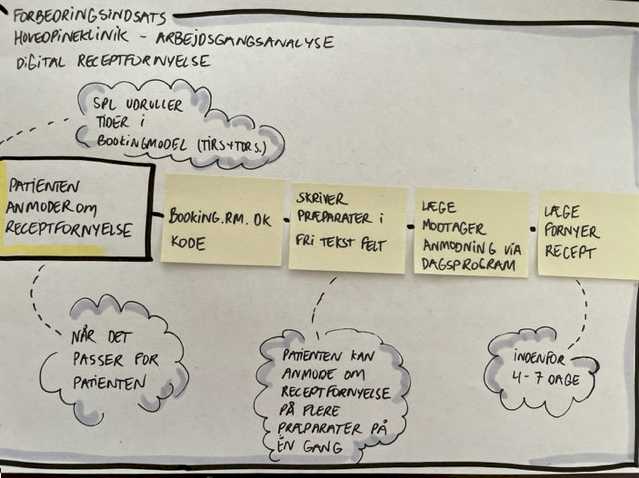 FORBEDRINGSINDSATS
HOVEDPINEKLINIK - ARBEJDSGANGSANALYSE
DIGITAL RECEPTFORNYELSE
SPL UDRULLER
TIDER I
BOOKINGMODEL (TIRS+TORS.)
PATIENTEN
ANMODER OM
RECEPTFORNYELSE
BOOKING.RM.DK
KODE
SKRIVER
PRÆPARATER I
FRI TEKST FELT
LÆGE
MODTAGER
ANMODNING VIA
DAGSPROGRAM
LÆGE
FORNYER
RECEPT
NÅR DET
PASSER FOR
PATIENTEN
PATIENTEN KAN
ANMODE OM
RECEPTFORNYELSE
PÅ FLERE
PRÆPARATER PÅ
ÉN GANG
INDENFOR
4-7 DAGE